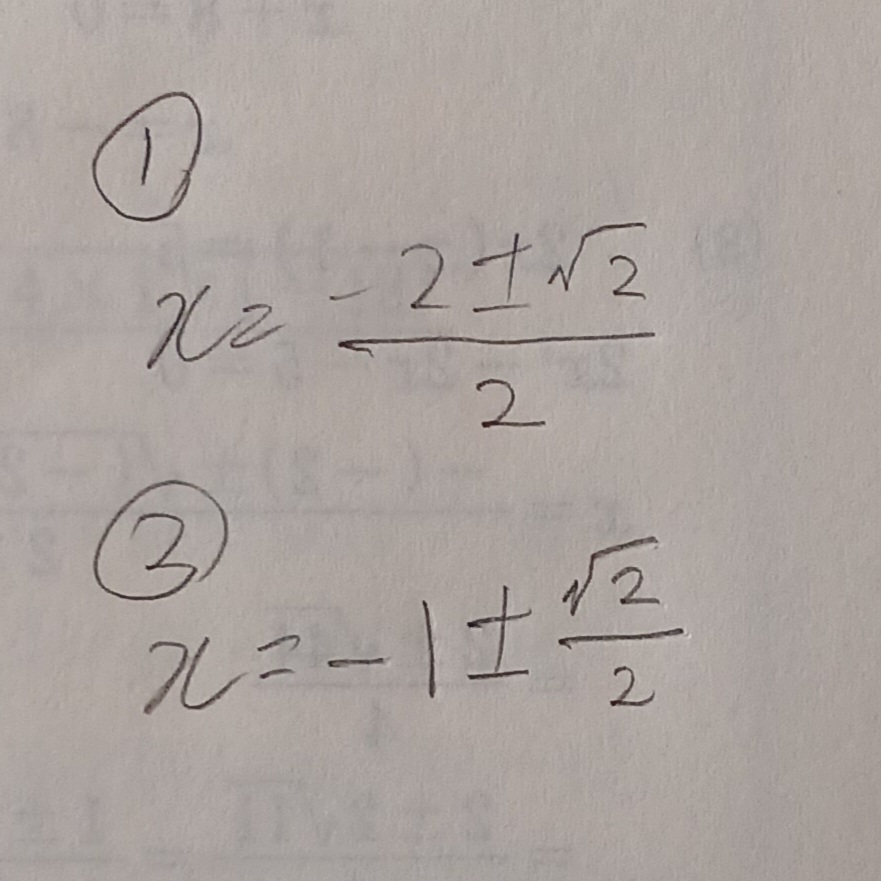 ①
x = (-2 ± √2) / 2
②
x = -1 ± √2 / 2